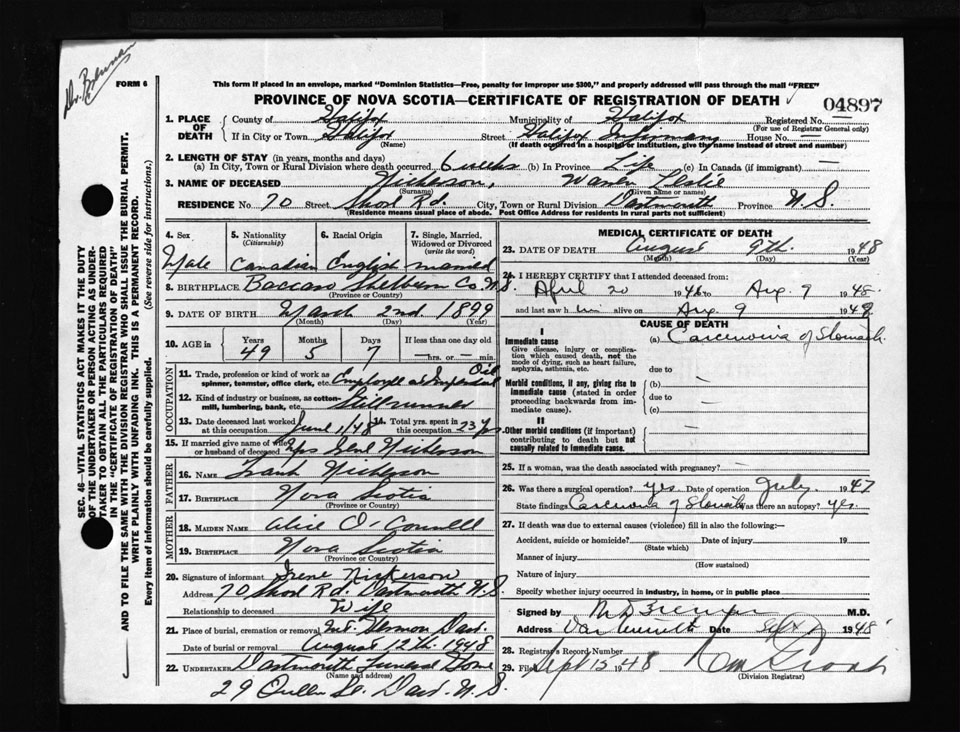 Dr. Brennan
FORM 6
This form if placed in an envelope, marked "Dominion Statistics—Free, penalty for improper use $300," and properly addressed will pass through the mail "FREE"
PROVINCE OF NOVA SCOTIA—CERTIFICATE OF REGISTRATION OF DEATH
04897
1. PLACE OF DEATH
County of Halifax Municipality of Halifax Registered No. —
(For use of Registrar General only)
If in City or Town Halifax Street Halifax Infirmary House No. —
(Name) (If death occurred in a hospital or institution, give the name instead of street and number)
2. LENGTH OF STAY (in years, months and days)
(a) In City, Town or Rural Division where death occurred 6 weeks (b) In Province Life (c) In Canada (if immigrant) —
3. NAME OF DECEASED Nickerson, Leslie
(Surname) (Given name or names)
RESIDENCE No. 70 Street Shore Rd. City, Town or Rural Division Dartmouth Province N.S.
(Residence means usual place of abode. Post Office Address for residents in rural parts not sufficient)
4. Sex
Male
5. Nationality
(Citizenship)
Canadian
6. Racial Origin
English
7. Single, Married, Widowed or Divorced
(write the word)
married
8. BIRTHPLACE Baccaro Shelburn Co. N.S.
(Province or Country)
9. DATE OF BIRTH March 2nd 1899
(Month) (Day) (Year)
10. AGE in Years Months Days If less than one day old
49 5 7 — hrs. or — min.
OCCUPATION
11. Trade, profession or kind of work as spinner, teamster, office clerk, etc. Employee at Imperial Oil
12. Kind of industry or business, as cotton-mill, lumbering, bank, etc. Stillrunner
13. Date deceased last worked at this occupation June 1/48
14. Total yrs. spent in this occupation 23 yrs
15. If married give name of wife or husband of deceased Mrs Nickerson
FATHER
16. NAME Frank Nickerson
17. BIRTHPLACE Nova Scotia
(Province or Country)
MOTHER
18. MAIDEN NAME Alice O'Connell
19. BIRTHPLACE Nova Scotia
(Province or Country)
20. Signature of informant Irene Nickerson
Address 70 Shore Rd. Dartmouth N.S.
Relationship to deceased Wife
21. Place of burial, cremation or removal Mt. Hermon Dart.
Date of burial or removal August 12th. 1948
22. UNDERTAKER Dartmouth Funeral Home
(Name and address)
29 Queen St. Dart. N.S.
MEDICAL CERTIFICATE OF DEATH
23. DATE OF DEATH August 9th. 1948
(Month) (Day) (Year)
24. I HEREBY CERTIFY that I attended deceased from:
April 20 1946 to Aug. 9 1948
and last saw him alive on Aug. 9 1948
CAUSE OF DEATH
I
Immediate cause
Give disease, injury or complication which caused death, not the mode of dying, such as heart failure, asphyxia, asthenia, etc.
(a) Carcinoma of Stomach
due to
Morbid conditions, if any, giving rise to immediate cause (stated in order proceeding backwards from immediate cause).
(b) —
due to
(c) —
II
Other morbid conditions (if important) contributing to death but not causally related to immediate cause.
—
25. If a woman, was the death associated with pregnancy? —
26. Was there a surgical operation? yes. Date of operation July. 1947
State findings Carcinoma of Stomach Was there an autopsy? yes.
27. If death was due to external causes (violence) fill in also the following:—
Accident, suicide or homicide? Date of injury 19
(State which)
Manner of injury
(How sustained)
Nature of injury
Specify whether injury occurred in industry, in home, or in public place
Signed by M.D.
Address Dartmouth Date 1948
28. Registrar's Record Number
29. Filed Sept 15 48
(Division Registrar)
SEC. 46—VITAL STATISTICS ACT MAKES IT THE DUTY
OF THE UNDERTAKER OR PERSON ACTING AS UNDER-
TAKER TO OBTAIN ALL THE PARTICULARS REQUIRED
IN THE "CERTIFICATE OF REGISTRATION OF DEATH"
AND TO FILE THE SAME WITH THE DIVISION REGISTRAR WHO SHALL ISSUE THE BURIAL PERMIT.
WRITE PLAINLY WITH UNFADING INK. THIS IS A PERMANENT RECORD.
Every item of information should be carefully supplied. (See reverse side for instructions.)